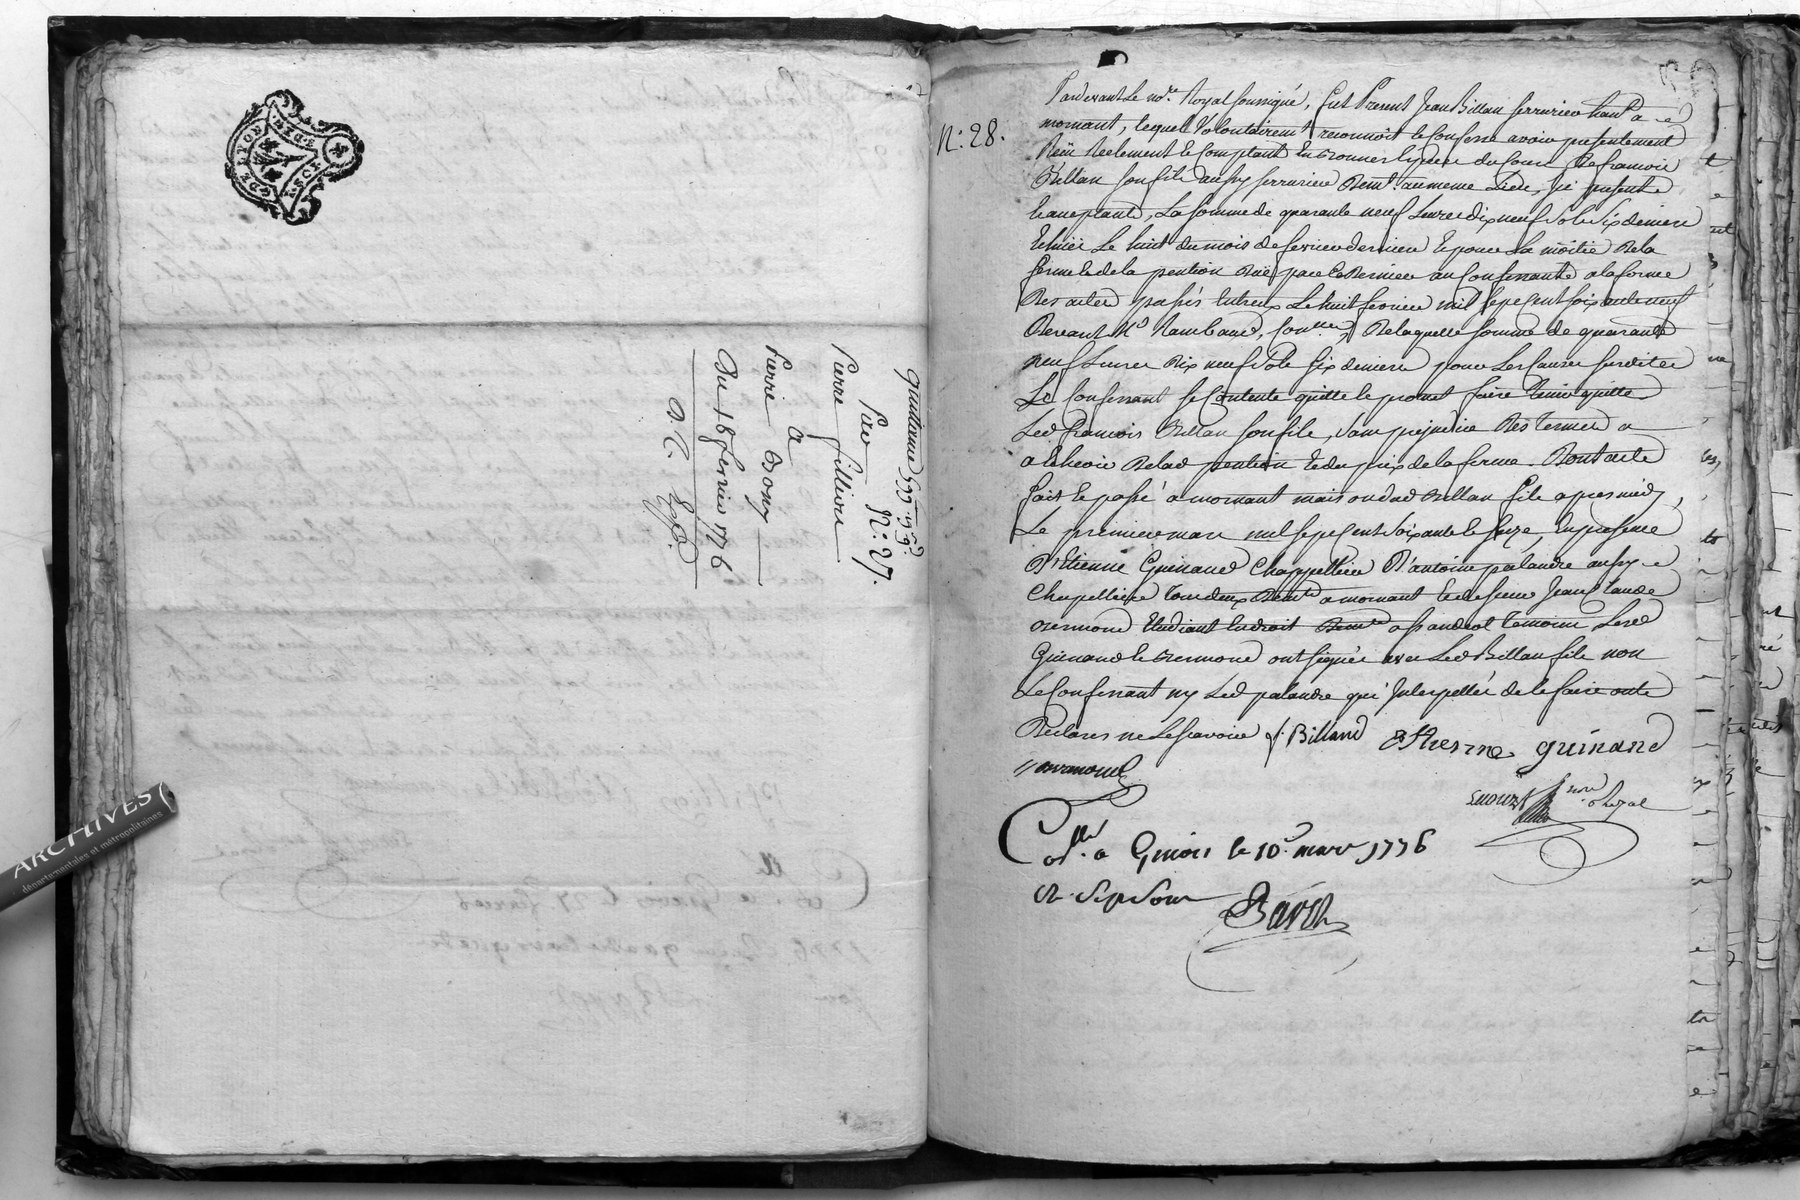 GE. DE. LYON
Quittance 599lt 19s 9d
Par N: 27.
Pierre filliere
a
Pierre Bony
Du 18 fevrier 1776
N: 28.
Pardevant le nore. Royal soussigné, fut Present Jean Billan serrurier habt. a
mornant, lequel volontairemt. reconnoit et confesse avoir presentement
Reçu Reelement et Comptant en bonnes especes du cours De francois
Billan son fils aussy serrurier Demt. au meme Lieu, ici present et
acceptant, La somme de quarante neuf Livres dix neuf sols six deniers
Echuë Le huit du mois de fevrier dernier et pour La moitié De la
ferme et de la pention Duë par ce Dernier au Confessant a la forme
Des actes passés entreux Le huit fevrier mil sept cent soixante neuf
Devant Me Rambaud, De laquelle somme de quarante
neuf Livres Dix neuf sols six deniers pour Les Causes susdites
Le Confessant se Contente quitte et promet faire tenir quitte
Led francois Billan son fils, sans prejudice Des termes a
a Echeoir De lad pention et du prix de la ferme. Dont acte
fait et passé a mornant maison dud Billan fils apres midy,
Le premier mars mil sept cent soixante et seize, en presence
D'Etienne Guinand Chappellier D'antoine palandre aussy
Chapellier tous deux Demts a mornant et de sieur Jean Claude
Bermond Etudiant en droit Demt a st andeol temoins Lesd
Guinand et Bermond ont signés avec Led Billan fils non
Le Confessant ny Led palandre qui Interpellés de le faire ont
Declarés ne Le scavoir f. Billand Esthienne guinand
nore Royal
Collé a Givors le 10e mars 1776
R. sept sous
ARCHIVES
départementales et métropolitaines